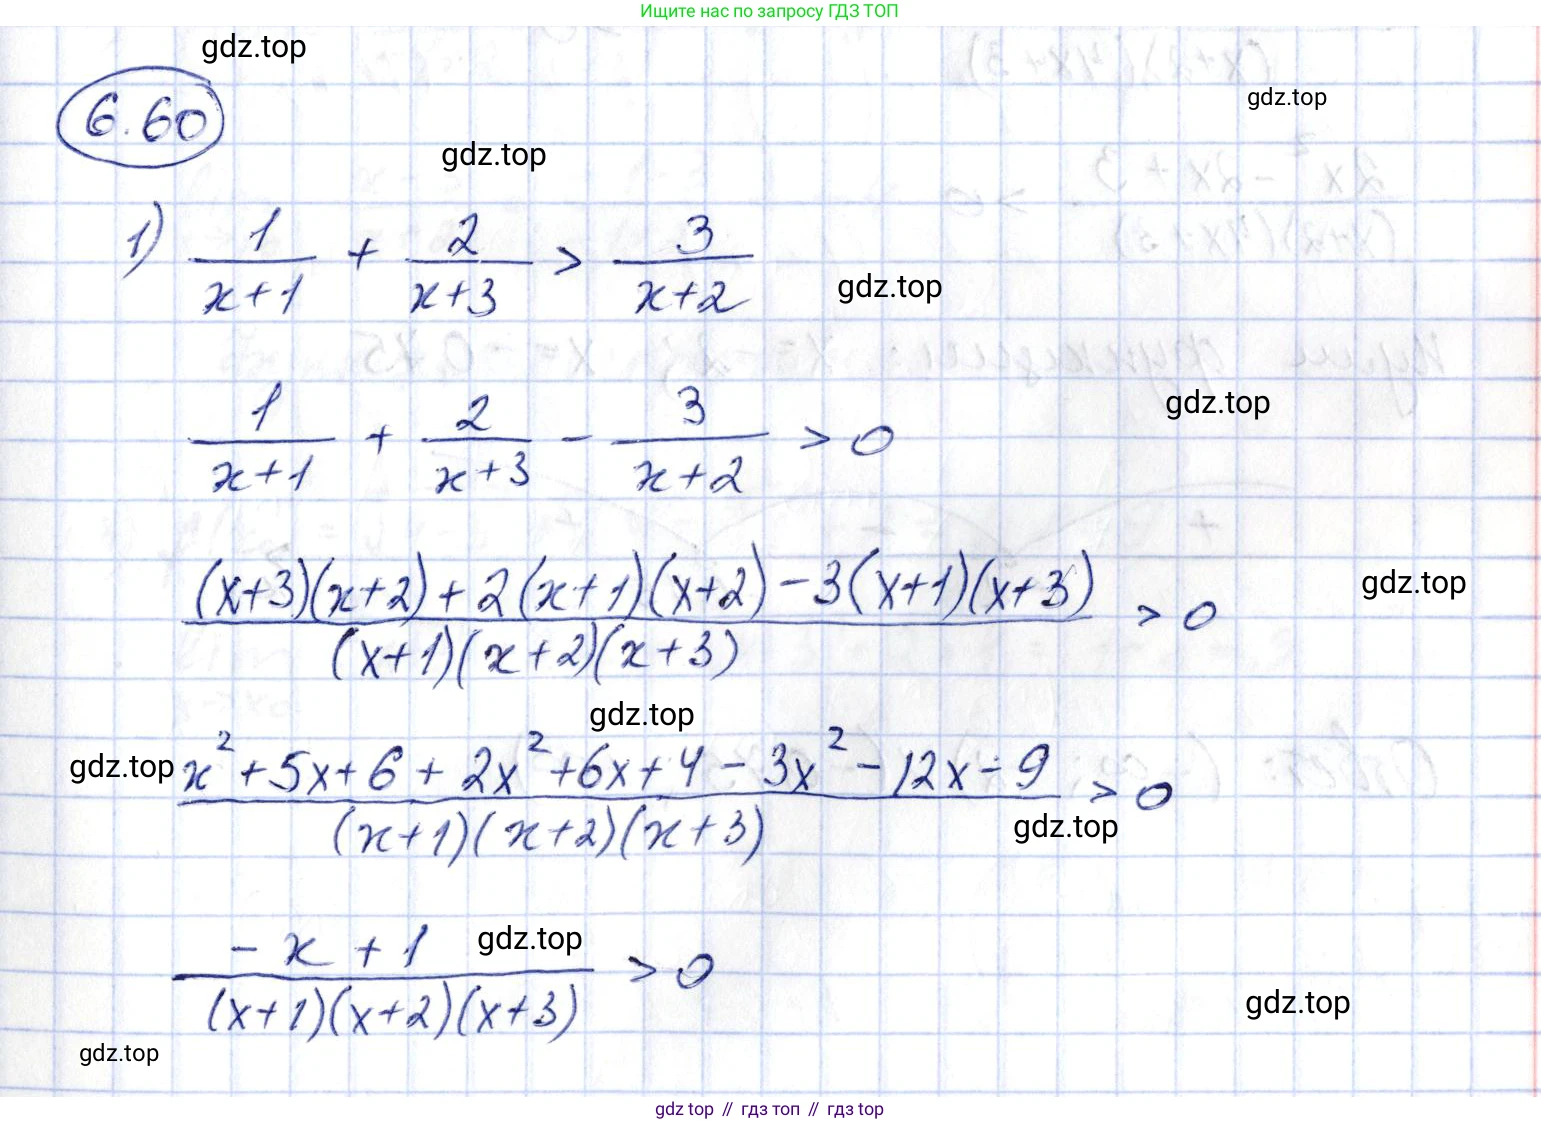 Ищите нас по запросу ГДЗ ТОП
gdz.top
6.60
gdz.top
gdz.top
1) 1/(x+1) + 2/(x+3) > 3/(x+2)
gdz.top
1/(x+1) + 2/(x+3) - 3/(x+2) > 0
gdz.top
((x+3)(x+2) + 2(x+1)(x+2) - 3(x+1)(x+3))/((x+1)(x+2)(x+3)) > 0
gdz.top
gdz.top
gdz.top
(x² + 5x + 6 + 2x² + 6x + 4 - 3x² - 12x - 9)/((x+1)(x+2)(x+3)) > 0
gdz.top
gdz.top
(-x + 1)/((x+1)(x+2)(x+3)) > 0
gdz.top
gdz.top
gdz top // гдз топ // gdz top